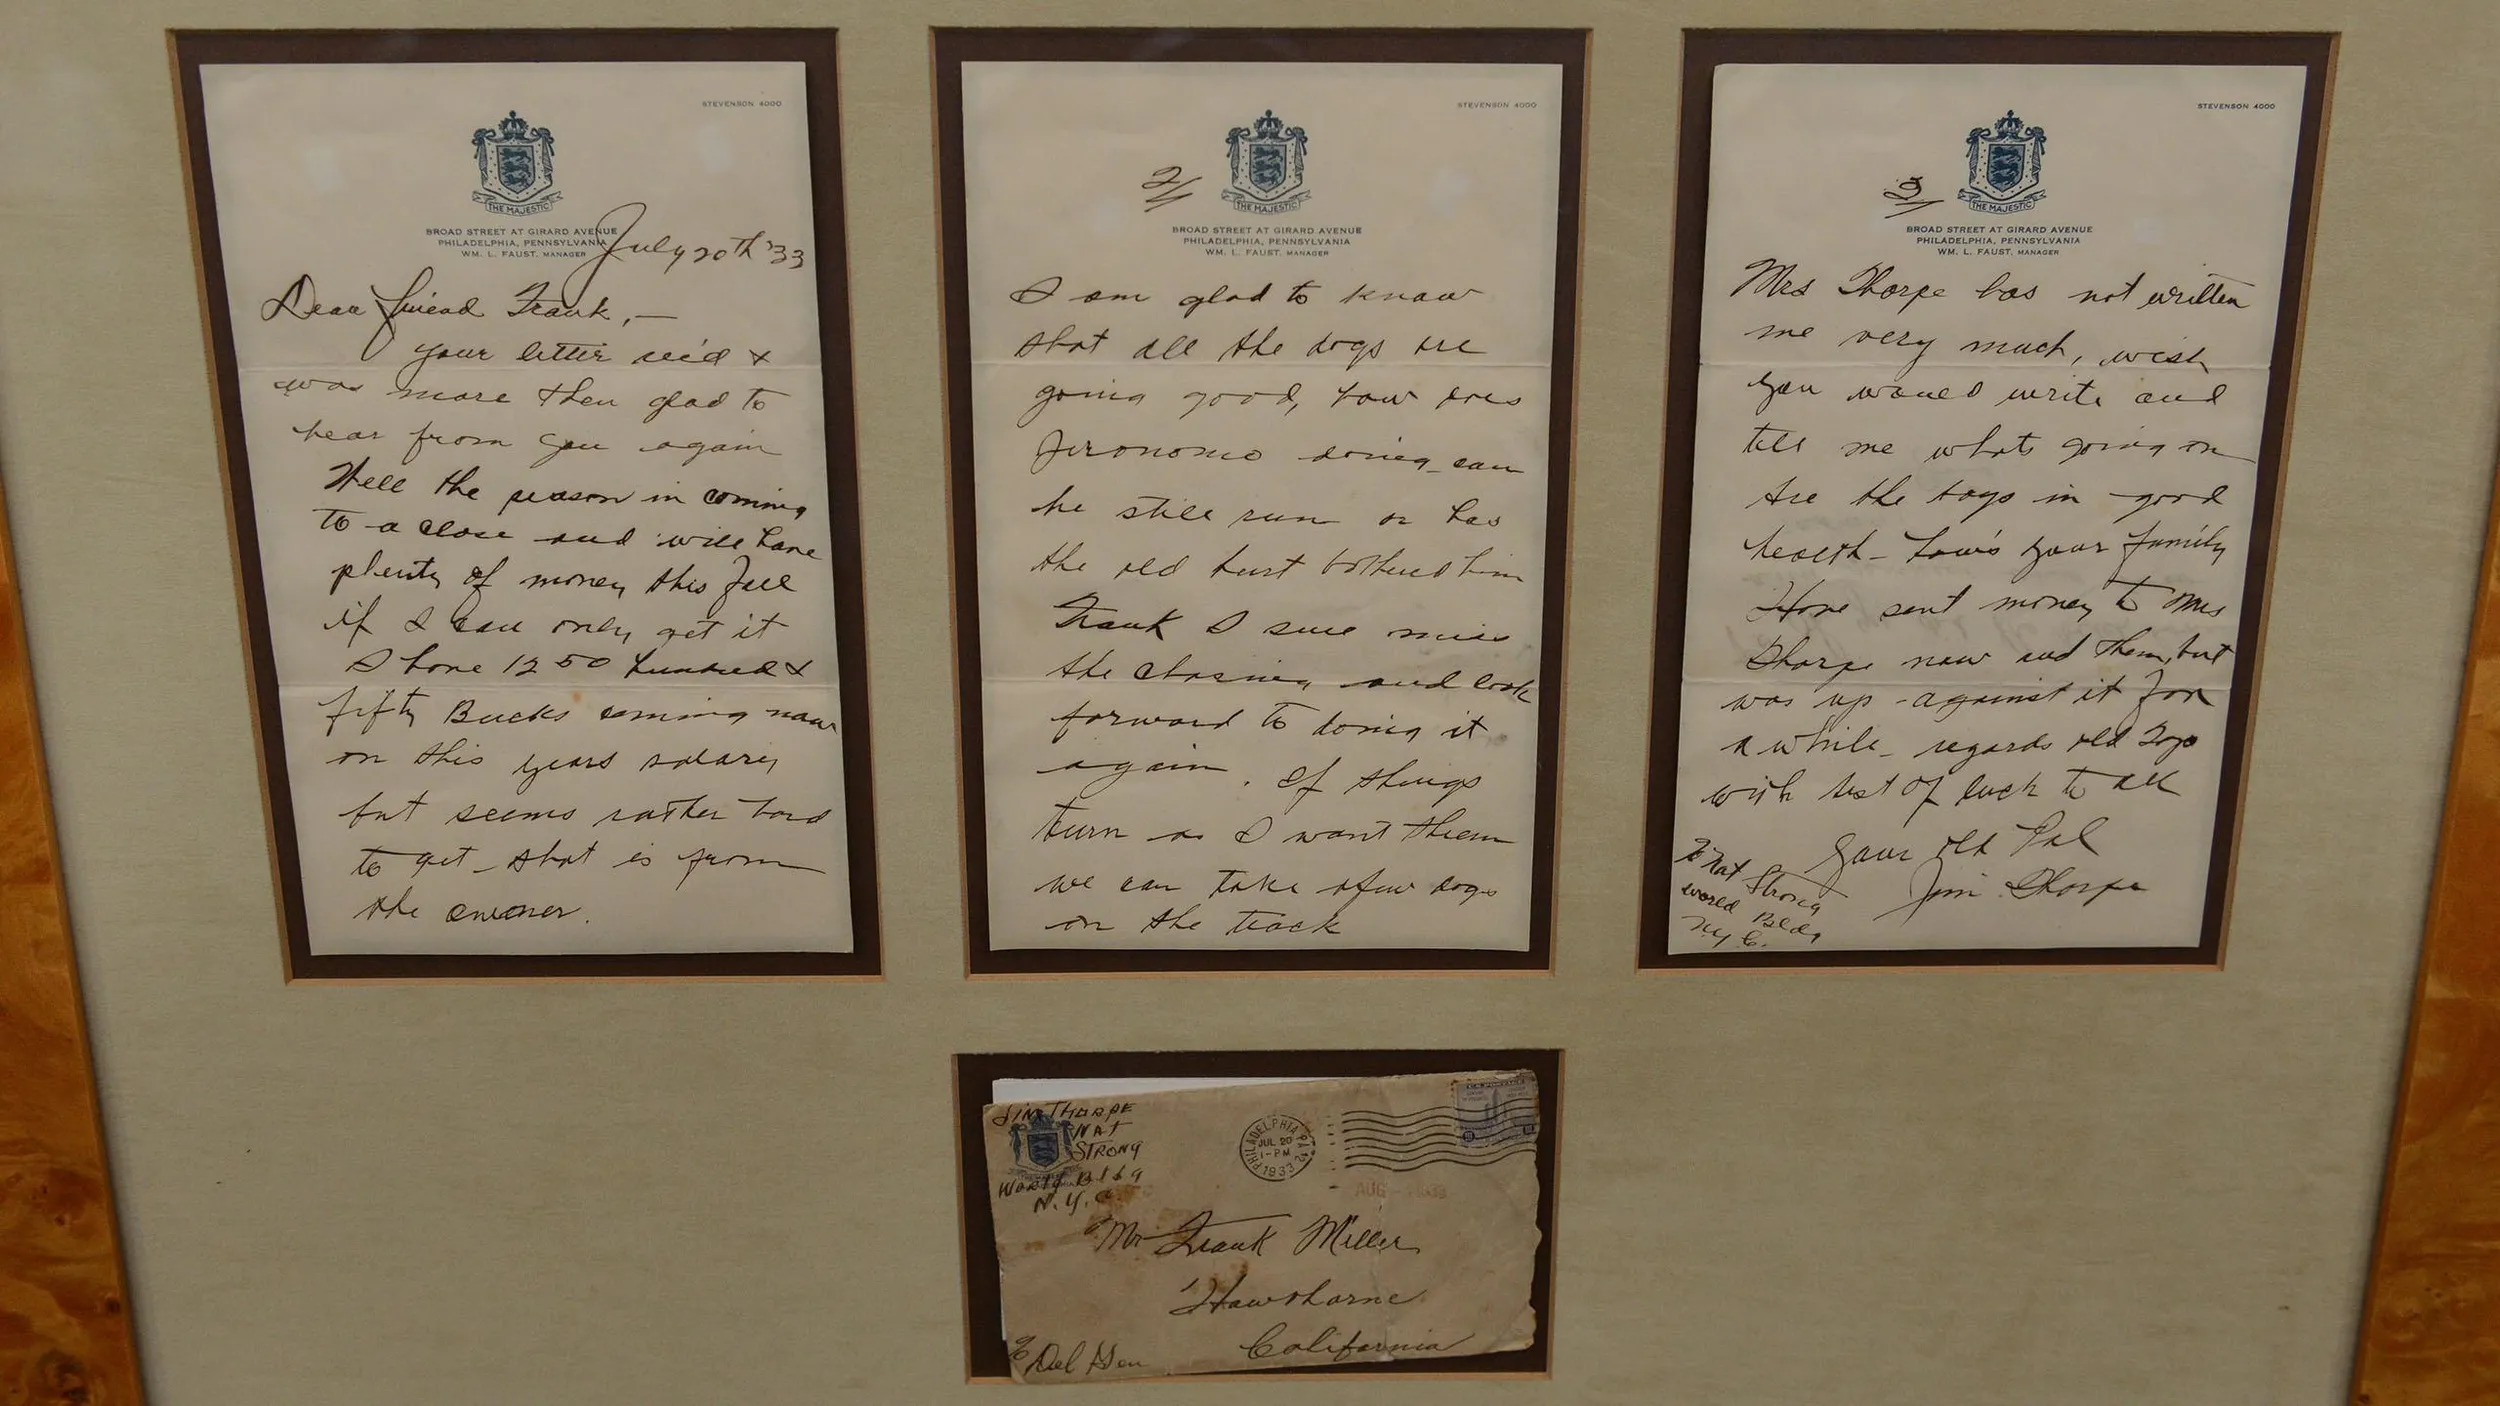 STEVENSON 4000
THE MAJESTIC
BROAD STREET AT GIRARD AVENUE
PHILADELPHIA, PENNSYLVANIA
WM. L. FAUST, MANAGER
July 20th '33
Dear friend Frank, —
your letter rec'd &
was more then glad to
hear from you again
Well the season in coming
to a close and will have
plenty of money this fall
if I can only get it
I have 1250 hundred &
fifty Bucks coming now
on this years salary
but seems rather hard
to get - that is from
the owner.
STEVENSON 4000
2/
THE MAJESTIC
BROAD STREET AT GIRARD AVENUE
PHILADELPHIA, PENNSYLVANIA
WM. L. FAUST, MANAGER
I am glad to know
that all the dogs are
going good, how does
Jeronomo doing - can
he still run or has
the old hurt bothered him
Frank I sure miss
the chasing and look
forward to doing it
again. If things
turn as I want them
we can take a few dogs
on the track
STEVENSON 4000
3/
THE MAJESTIC
BROAD STREET AT GIRARD AVENUE
PHILADELPHIA, PENNSYLVANIA
WM. L. FAUST, MANAGER
Mrs Thorpe has not written
me very much, wish
you would write and
tell me whats going on
Are the boys in good
health - how's your family
Have sent money to Mrs
Thorpe now and then, but
was up against it for
a while - regards old
with best of luck to all
Your old Pal
Jim Thorpe
% Nat Strong
World Bldg
N.Y.C.
JIM THORPE
NAT
STRONG
WORLD BLDG
N.Y.C.
PHILADELPHIA PA
JUL 20
1-PM
1933
AUG
Mr Frank Miller
Hawthorne
California
% Del